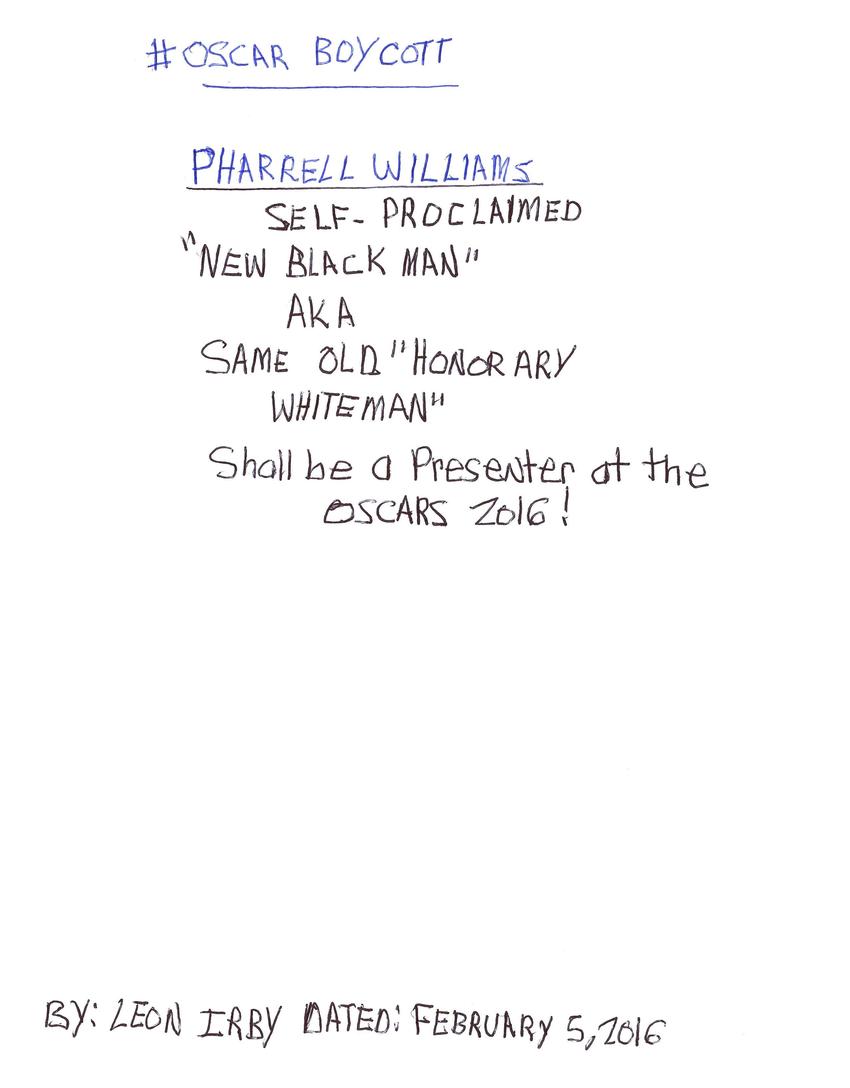 #OSCAR BOYCOTT
PHARRELL WILLIAMS
SELF-PROCLAIMED
"NEW BLACK MAN"
AKA
SAME OLD "HONORARY
WHITEMAN"
Shall be a Presenter at the
OSCARS 2016!
BY: LEON IRBY DATED: FEBRUARY 5, 2016